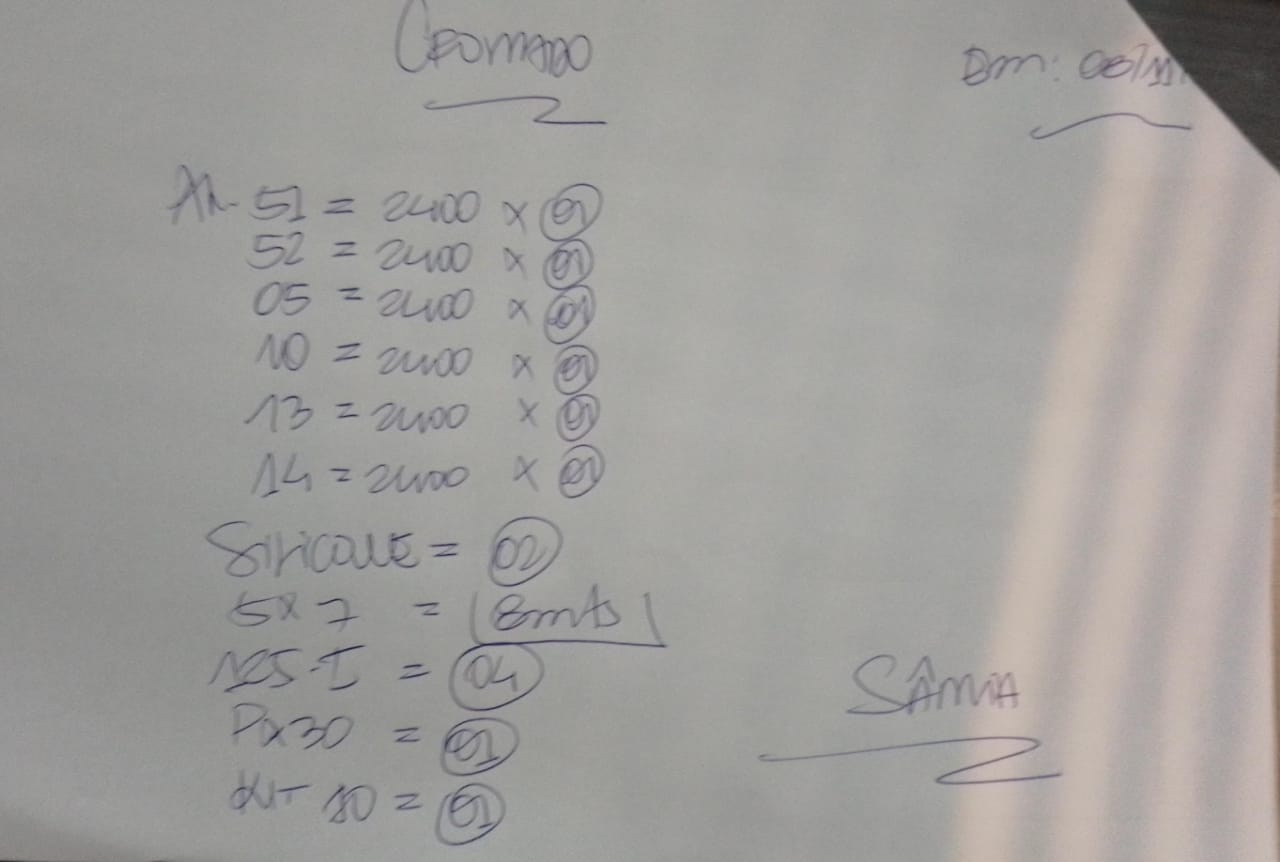 CROMADO
Em: 06/11
AL- 51 = 2400 x 01
52 = 2400 x 01
05 = 2400 x 01
10 = 2400 x 01
13 = 2400 x 01
14 = 2400 x 01
SILICONE = 02
5x7 = 8mts
125-I = 04
Px30 = 01
KIT 10 = 01
SÂNIA